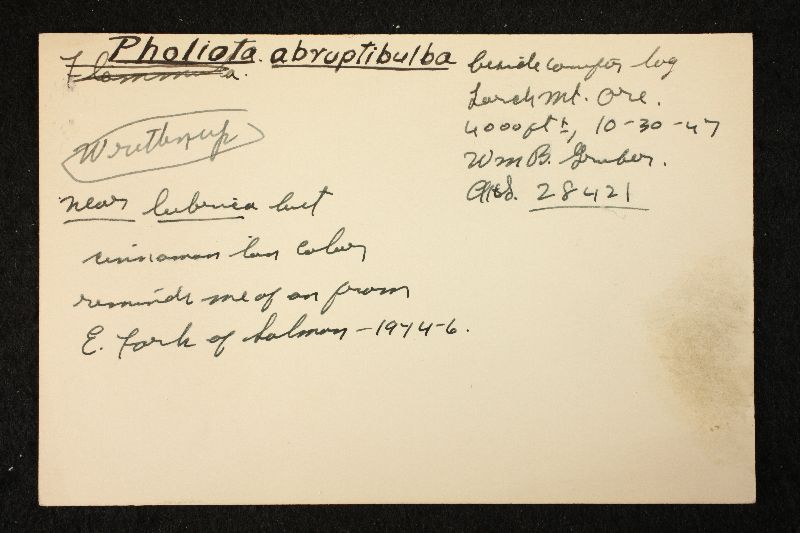 Pholiota abruptibulba
Flammula.
Write up
near lubrica but
cinnamon tan color
reminds me of on from
E. Fork of Salmon - 1944-6.
beside conifer log
Larch Mt. Ore.
4000 ft ±, 10-30-47
Wm B. Gruber.
28421